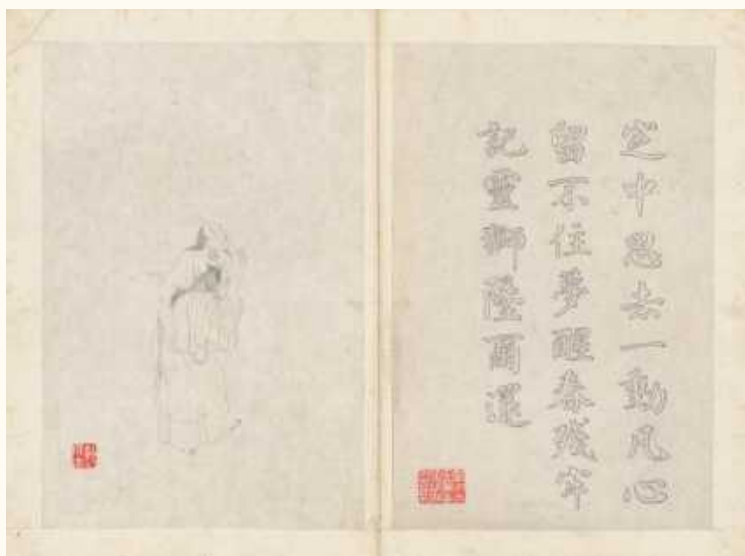 定中思去一動凡心
留不住夢醒春殘牢
記靈獅爾還